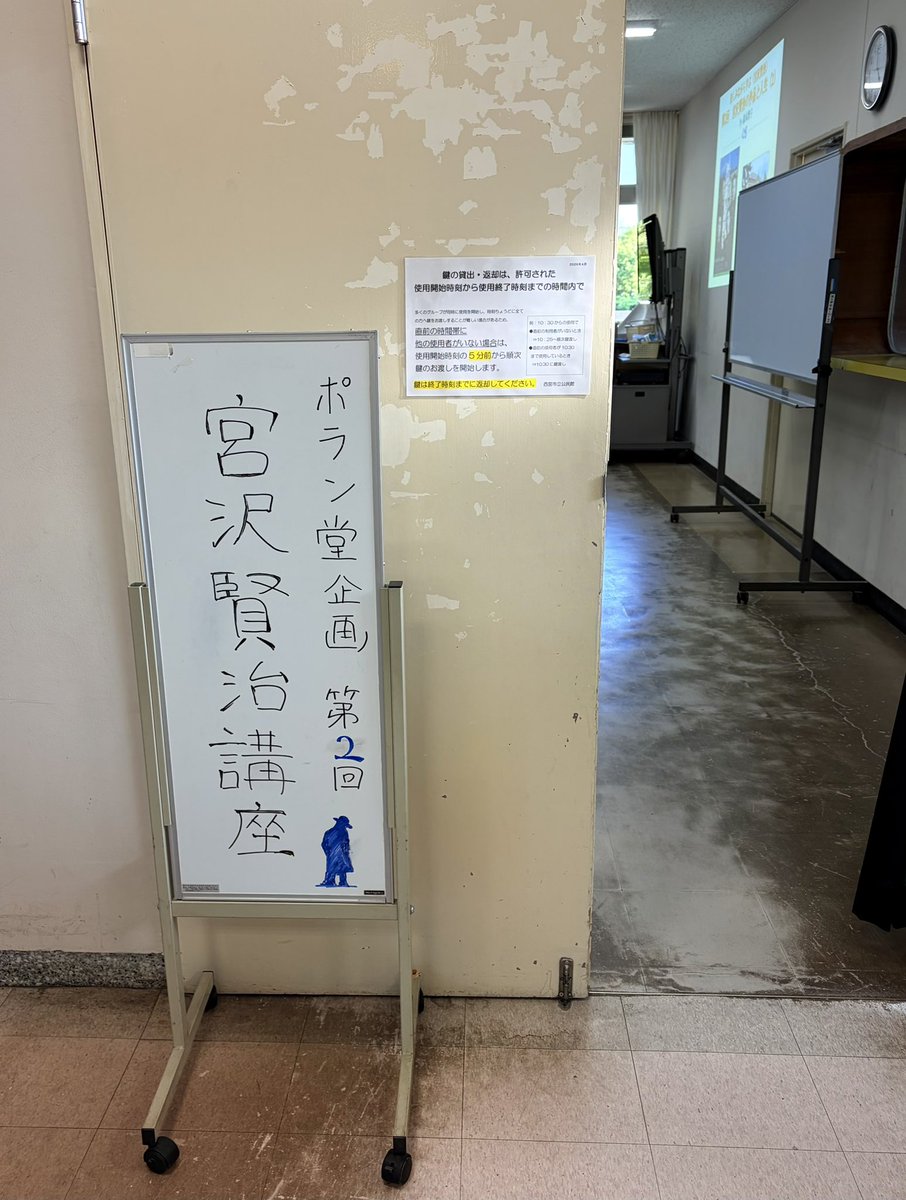 ポラン堂企画 第2回
宮沢賢治講座
鍵の貸出・返却は、許可された
使用開始時刻から使用終了時刻までの時間内で
多くのグループが同時に使用を開始し、時刻ちょうどに全て
の方へ鍵をお渡しすることが難しい場合があるため、
直前の時間帯に
他の使用者がいない場合は、
使用開始時刻の5分前から順次
鍵のお渡しを開始します。
鍵は終了時刻までに返却してください。
例:10:30からの使用で
●直前の利用者がいないとき
⇒10:25~順次鍵渡し
●直前の使用者が10:30
まで使用しているとき
⇒10:30に鍵渡し
西宮市立公民館